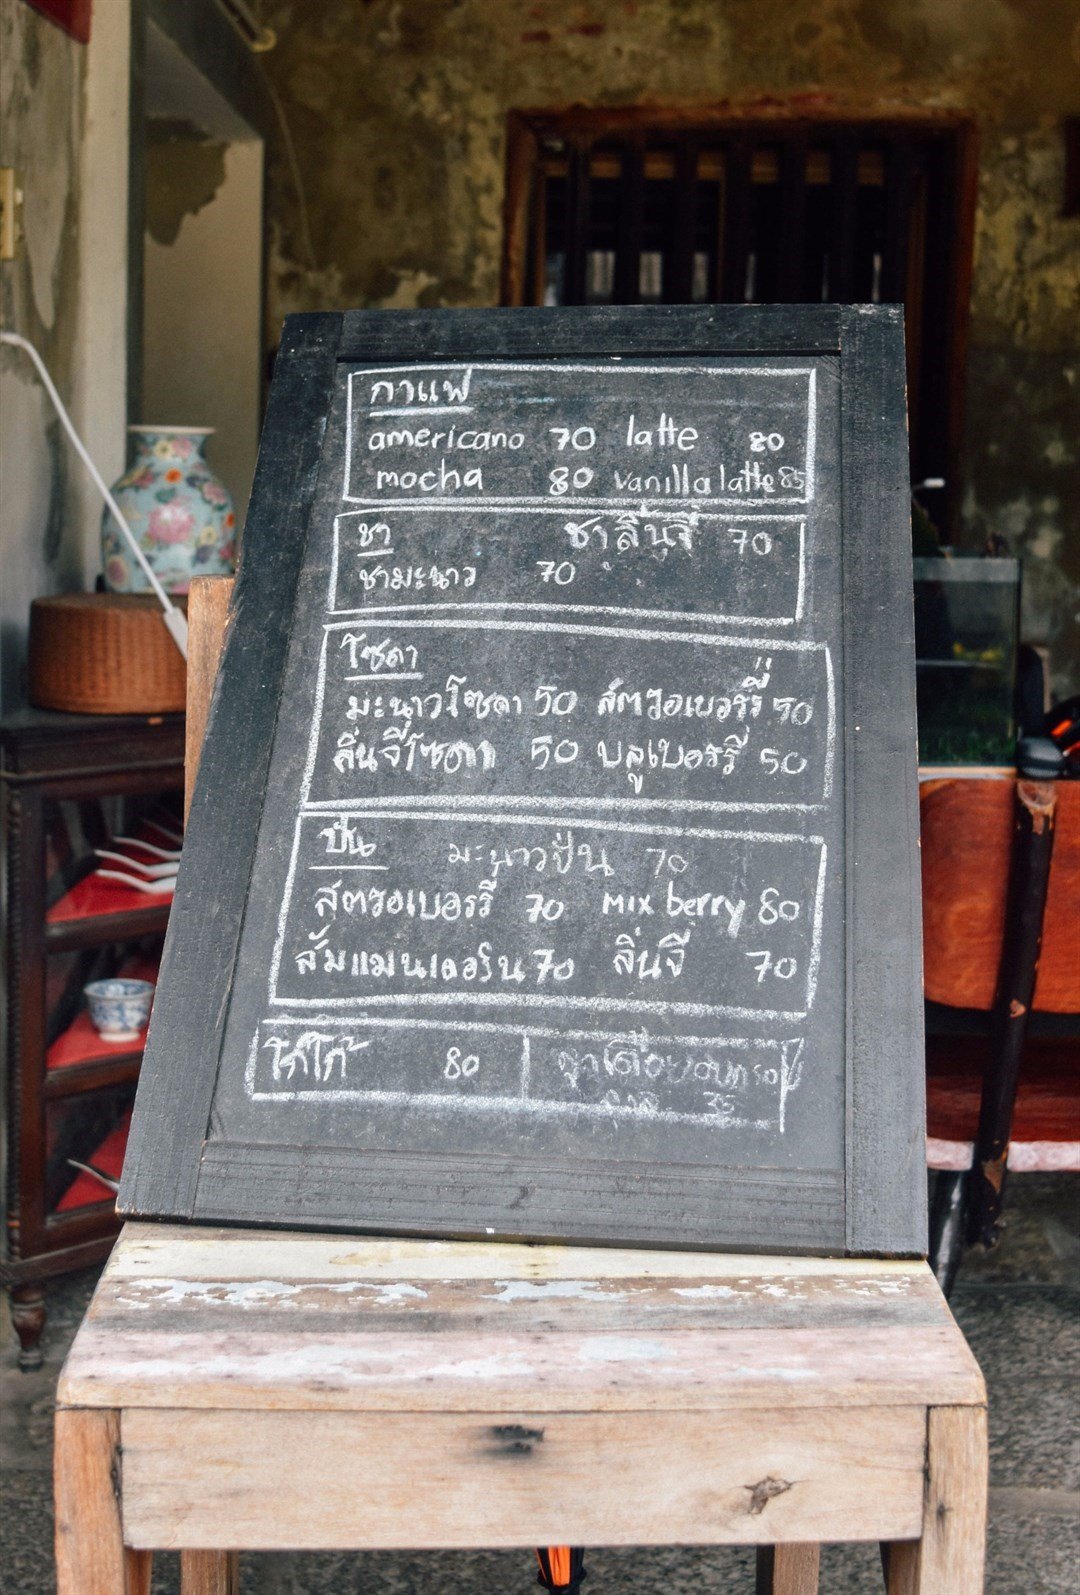 กาแฟ
americano 70 latte 80
mocha 80 vanilla latte 85
ชา ชาลิ้นจี่ 70
ชามะนาว 70
โซดา
มะนาวโซดา 50 สตรอเบอร์รี่ 50
ลิ้นจี่โซดา 50 บลูเบอร์รี่ 50
ปั่น มะนาวปั่น 70
สตรอเบอร์รี่ 70 mix berry 80
ส้มแมนเดอริน 70 ลิ้นจี่ 70
โกโก้ 80
35